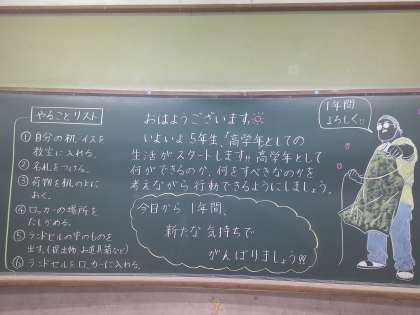 やることリスト
① 自分の机、イスを
教室に入れる。
② 名札をつける。
③ 荷物を机の上に
おく。
④ ロッカーの場所を
たしかめる。
⑤ ランドセルの中のものを
出す。(提出物、お道具箱など)
⑥ ランドセルをロッカーに入れる。
おはようございます
いよいよ5年生、「高学年としての
生活がスタートします!!高学年として
何ができるのか、何をすべきなのかを
考えながら行動できるようにしましょう。
今日から1年間、
新たな気持ちで
がんばりましょう!!!
1年間
よろしく!!